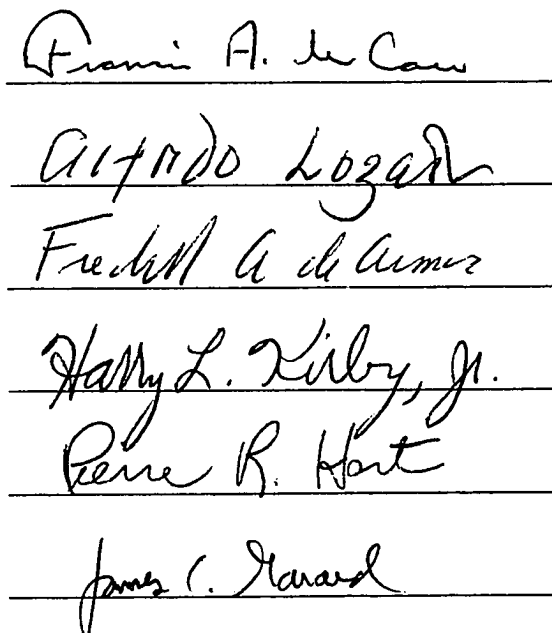 A. de Caro
Alfredo Lozano
Frederick A de Armas
Harry L. Kirby, Jr.
Pierre R. Hart
James C.